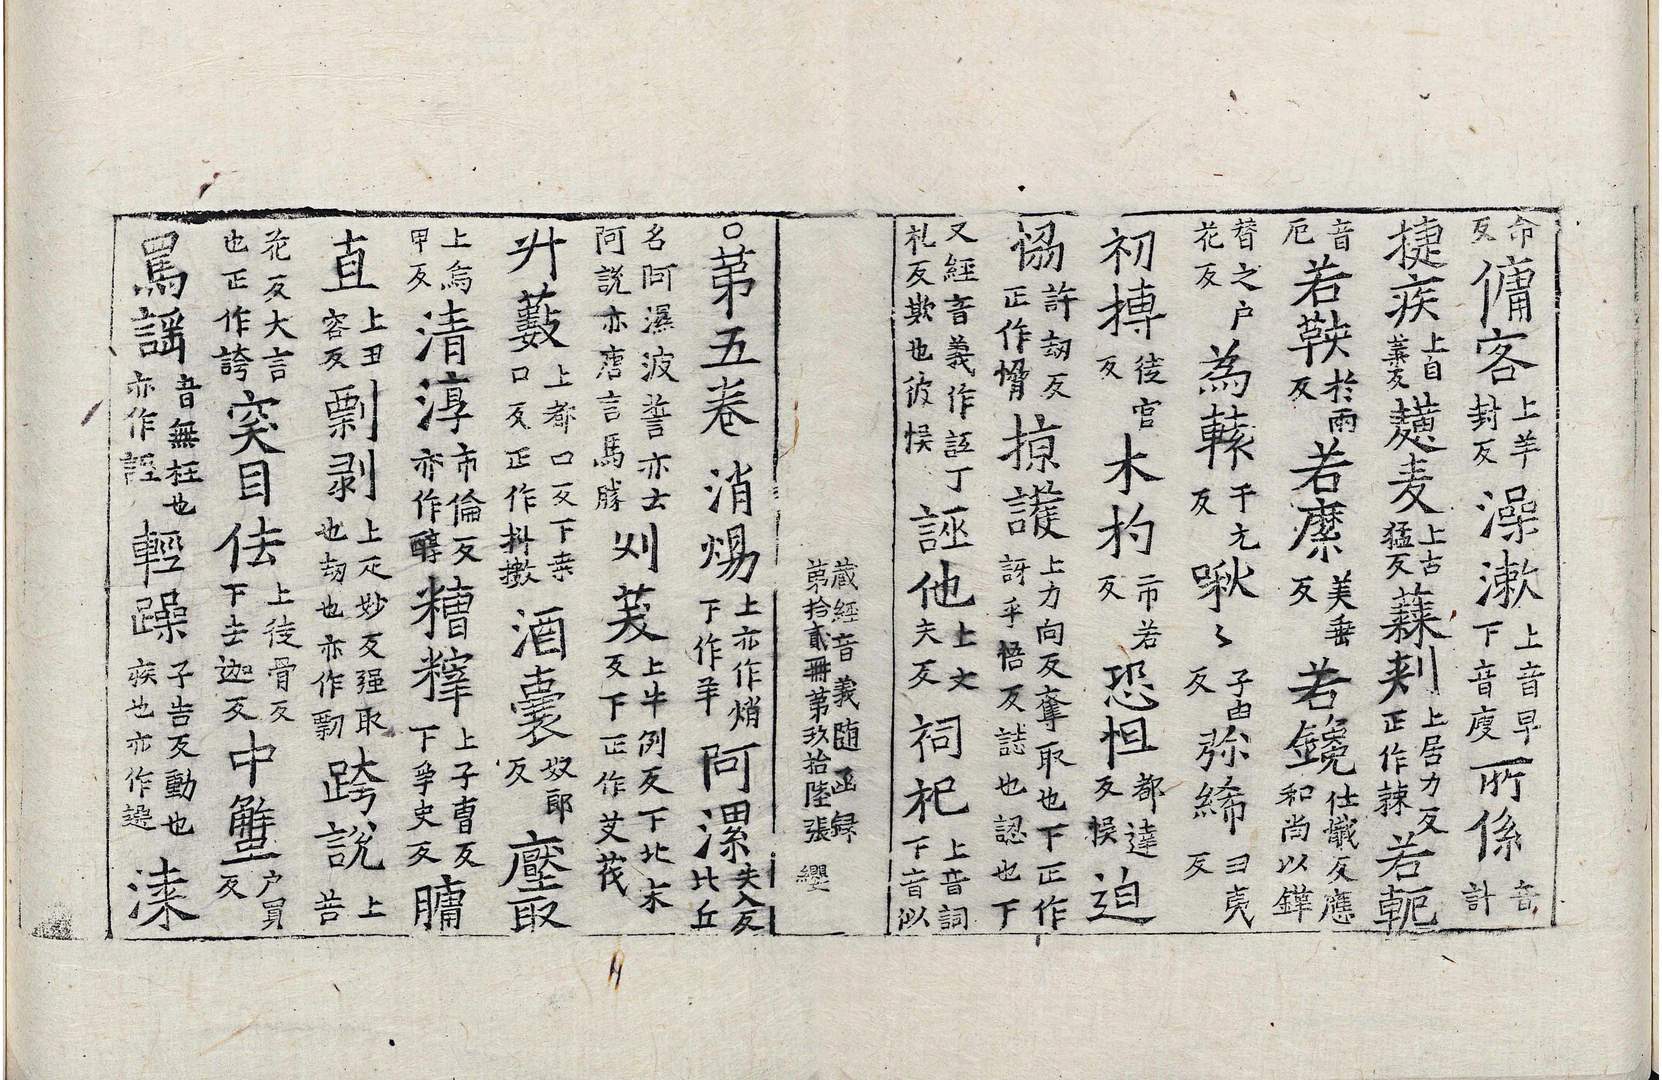 命反傭客上羊封反澡漱上音早下音瘦所係音計
捷疾上自葉反麨麦上古猛反蕀刺上居力反正作棘若軛
音厄若鞅於兩反若縻美垂反若鑱仕懺反應和尚以鏵
替之户花反為轅于元反啾〻子由反弥絺丑夷反
初摶徒官反木杓市若反恐怛都達反悮迫
愶許刼反正作脅掠護上力向反奪取也下正作訝乎悟反誌也認也下
又經音義作誙丁礼反欺也彼悮誣他上文夫反祠祀上音詞下音似
藏經音義随函録第拾貳冊第玖拾陸張 纓
○第五卷 消煬上亦作焇下作羊阿漯失入反比丘
名阿濕波誓亦云阿說亦唐言馬勝刈芟上牛例反下北末反下正作茇茷
升藪上都口反下桒口反正作抖擻酒囊奴郎反壓取
上烏甲反清淳市倫反亦作醇糟糏上子曹反下爭史反牅
直上丑容反剽剥上疋妙反强取也刼也亦作剠跨說上苦
花反大言也正作誇突目佉上徒骨反下去迦反中蟹户買反
罵謡音無枉也亦作誙輕躁子告反動也疾也亦作趮溙